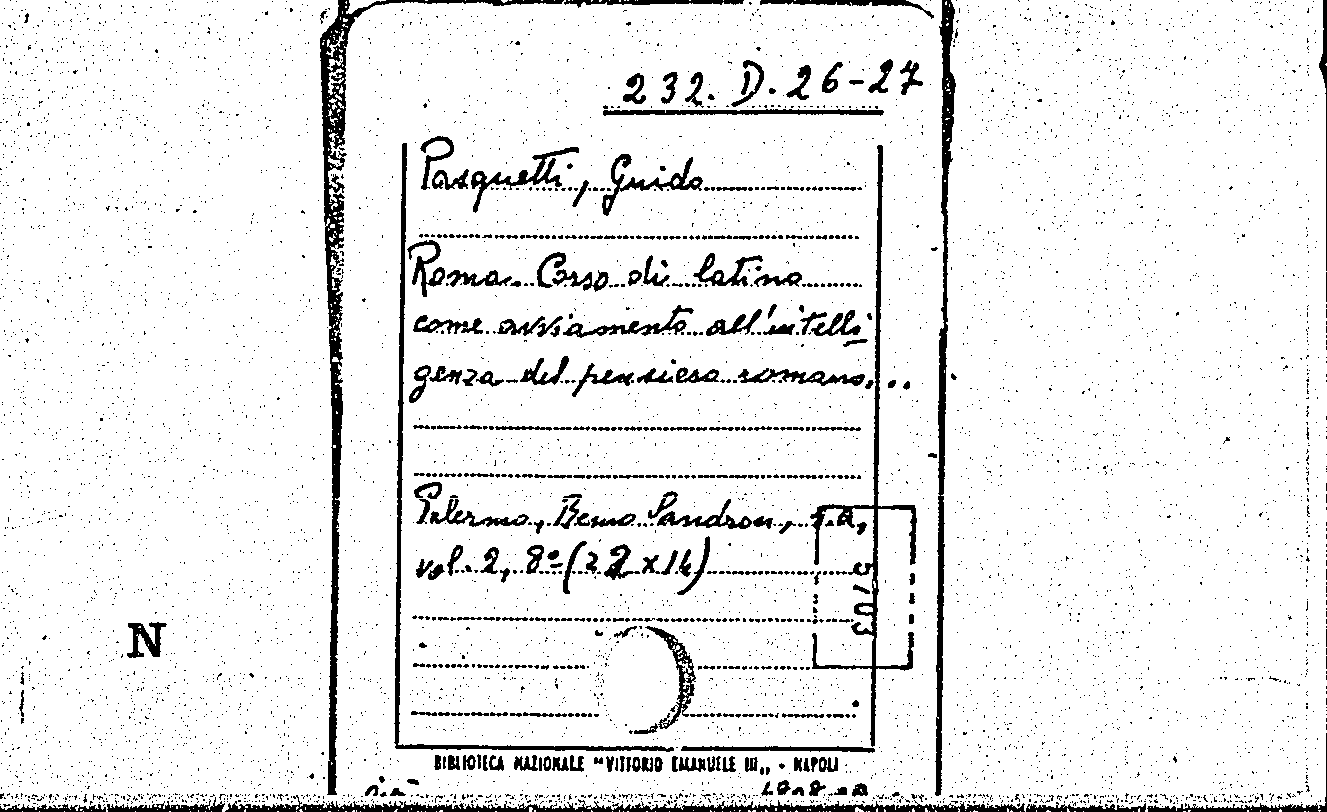 232. D. 26-27
Pasquetti, Guido
Roma. Corso di latino
come avviamento all'intelli
genza del pensiero romano...
Palermo, Remo Sandron, s.a,
vol. 2, 8º (22 x 14)
5703
N
BIBLIOTECA NAZIONALE "VITTORIO EMANUELE III" - NAPOLI